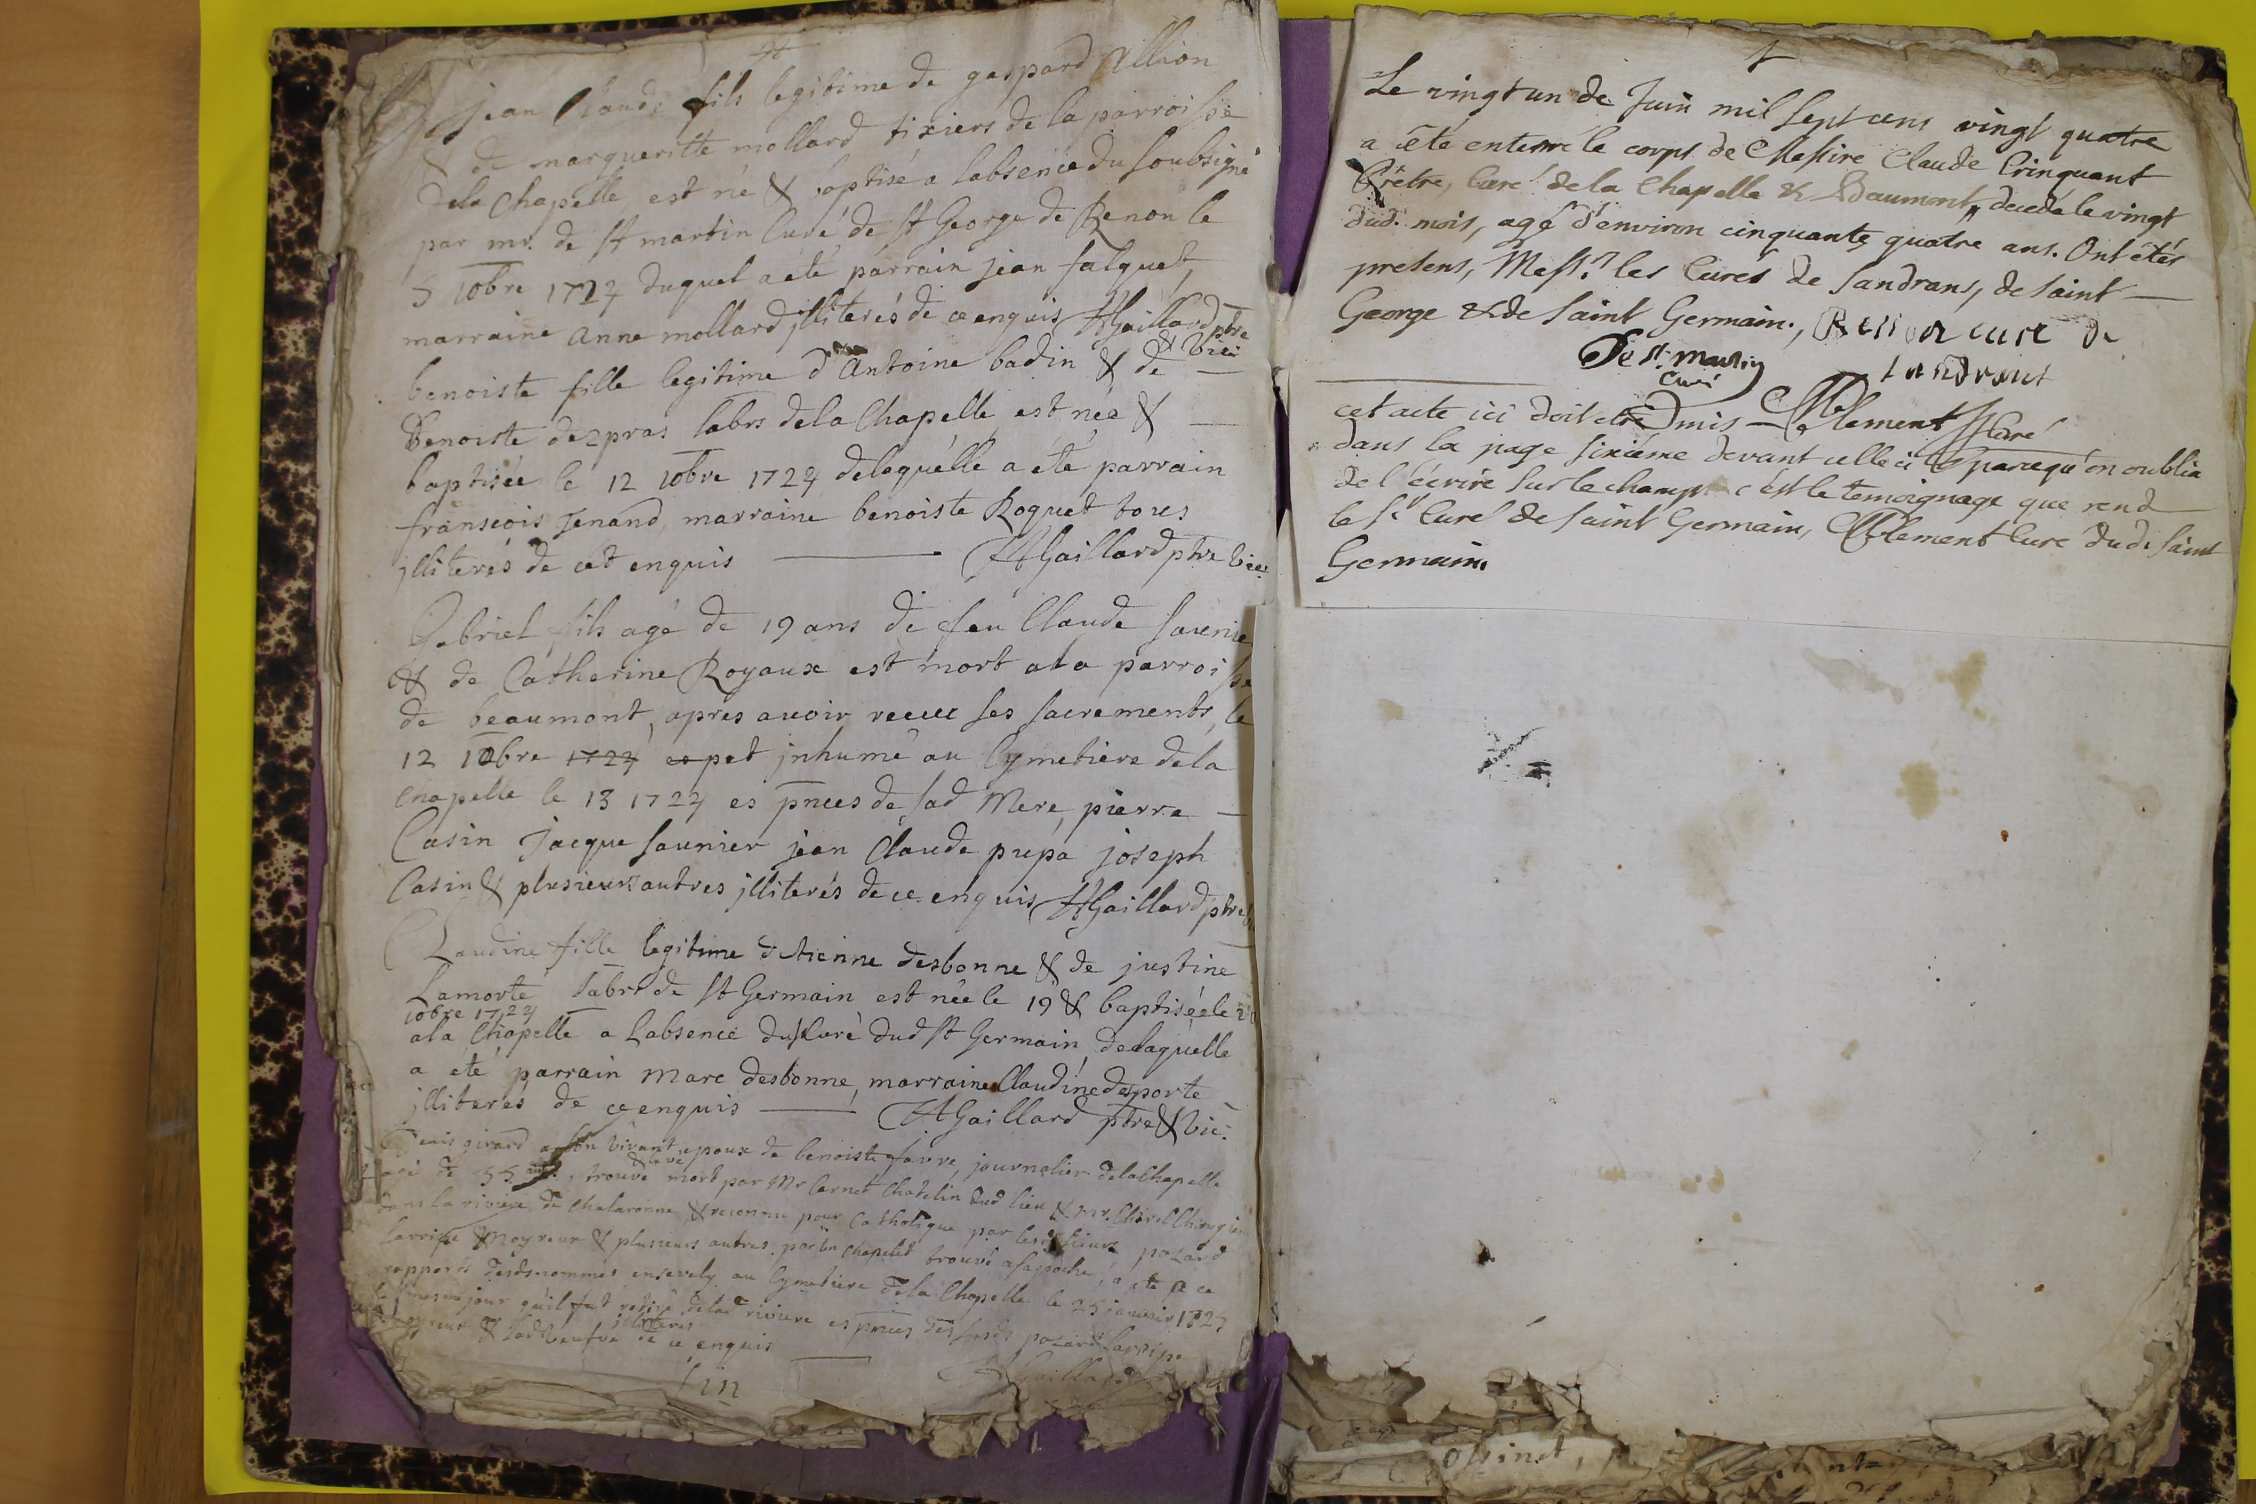 jean Claude fils legitime de gaspard Allion
& de margueritte mollard tixiers de la parroisse
de la Chapelle est né & baptisé a labsence du soubsigné
par mr. de st martin Curé de st George de Renon le
5 10bre 1724 duquel a eté parrain jean falquet,
marraine Anne mollard jlliterés de ce enquis AGaillard ptre
& vic:
benoiste fille legitime d'Antoine badin & de
Benoiste dezpras labrs de la Chapelle est née &
baptisée le 12 10bre 1724 delaquélle a été parrain
franseois Jenand, marraine benoiste Roquet tous
jlliterés de cet enquis AGaillard ptre vic:
Gabriel fils agé de 19 ans de feu Claude saunie
& de Catherine Royaux est mort a la parroisse
de beaumont, apres avoir receu ses sacrements, le
12 10bre 1724 et jnhumé au Cymetiere de la
Chapelle le 13 1724 es pnces de sad Mere, pierre
Casin Jacque saunier jean Claude pupa joseph
Casin & plusieurs autres jlliterés de ce enquis AGaillard ptre
Claudine fille legitime d'Etienne desbonne & de justine
Lamorte labrs de st Germain est née le 19 & baptisée le 2
10bre 1724
a la Chapelle a Labsence du sr Curé dud st Germain, delaquélle
a été parrain Marc desbonne, marraine Claudine desporte
jlliterés de ce enquis AGaillard ptre & Vic:
Denis girard a son vivant epoux de benoiste favre, journalier de la Chapelle
agé de 55 ans, trouvé & levé mort par Mr Carnet Chatelin dud lieu & mr. Chirurgien
dans la riviere de Chalaronne, & reconnu pour Catholique par lesd sieurs pozard
Larripe & Moyroux & plusieurs autres, par un Chapelet trouvé a sa poche, a eté a ce
rapport desds nommés ensevely au Cymetiere de la Chapelle le 25 janvier 172
le mesme jour qu'il fut retiré de lad riviere es pnces des susds pozard Larripe
& lad veufve jlliterés de ce enquis
AGaillard
fin
Le vingt un de Juin mil sept cens vingt quatre
a eté enterré le corps de Messire Claude Crinquant
Prêtre, Curé de la Chapelle & Baumont, decedé le vingt
dud. mois, agé d'environ cinquante quatre ans. Ont êtés
presens, Mess.rs les Curés de Sandrans, de Saint
George & de Saint Germain.,
curé de
sandrans
De st. martin
Curé
Clement Curé
cet acte ici doit etre mis
dans la page sixiéme devant celle ci parcequ'on oublia
de l'écrire sur le champ c'est le temoignage que rend
le sr Curé de Saint Germain, Clement Curé dud. Saint
Germain.